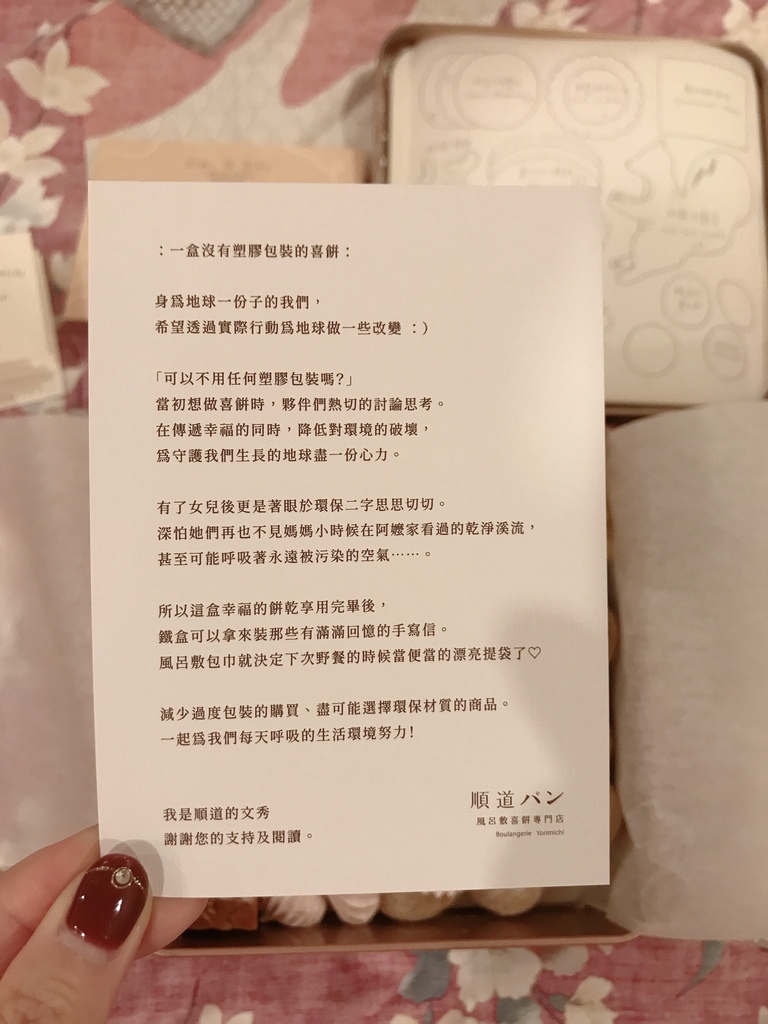 ：一盒沒有塑膠包裝的喜餅：
身爲地球一份子的我們，
希望透過實際行動爲地球做一些改變 ：）
「可以不用任何塑膠包裝嗎？」
當初想做喜餅時，夥伴們熱切的討論思考。
在傳遞幸福的同時，降低對環境的破壞，
爲守護我們生長的地球盡一份心力。
有了女兒後更是著眼於環保二字思思切切。
深怕她們再也不見媽媽小時候在阿嬤家看過的乾淨溪流，
甚至可能呼吸著永遠被污染的空氣……。
所以這盒幸福的餅乾享用完畢後，
鐵盒可以拿來裝那些有滿滿回憶的手寫信。
風呂敷包巾就決定下次野餐的時候當便當的漂亮提袋了♡
減少過度包裝的購買、盡可能選擇環保材質的商品。
一起爲我們每天呼吸的生活環境努力！
我是順道的文秀
謝謝您的支持及閱讀。
順道パン
風呂敷喜餅專門店
Boulangerie Yorimichi